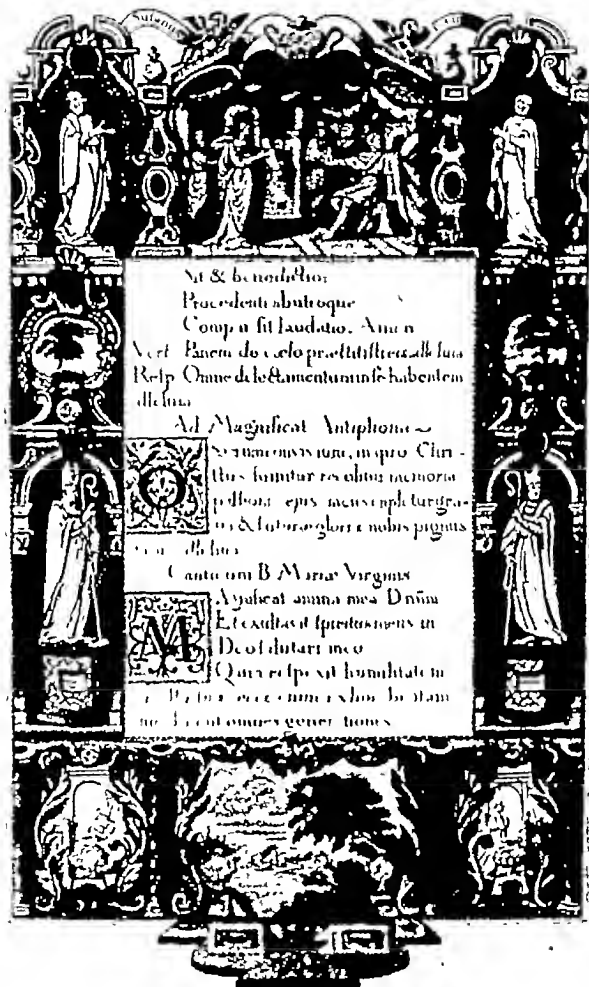 Sit & benedictio:
Procedenti ab utroque
Compar sit laudatio. Amen
Vers. Panem de cælo præstitisti eis, alleluia
Resp. Omne delectamentum in se habentem
alleluia
Ad Magnificat Antiphona
O Sacrum convivium, in quo Chri-
stus sumitur recolitur memoria
passionis ejus mens impletur gra-
tia & futuræ gloriæ nobis pignus
alleluia
Canticum B. Mariæ Virginis
MAgnificat anima mea Dnum
Et exultavit spiritus meus in
Deo salutari meo
Quia respexit humilitatem
ecce enim ex hoc beatam
me dicent omnes generationes